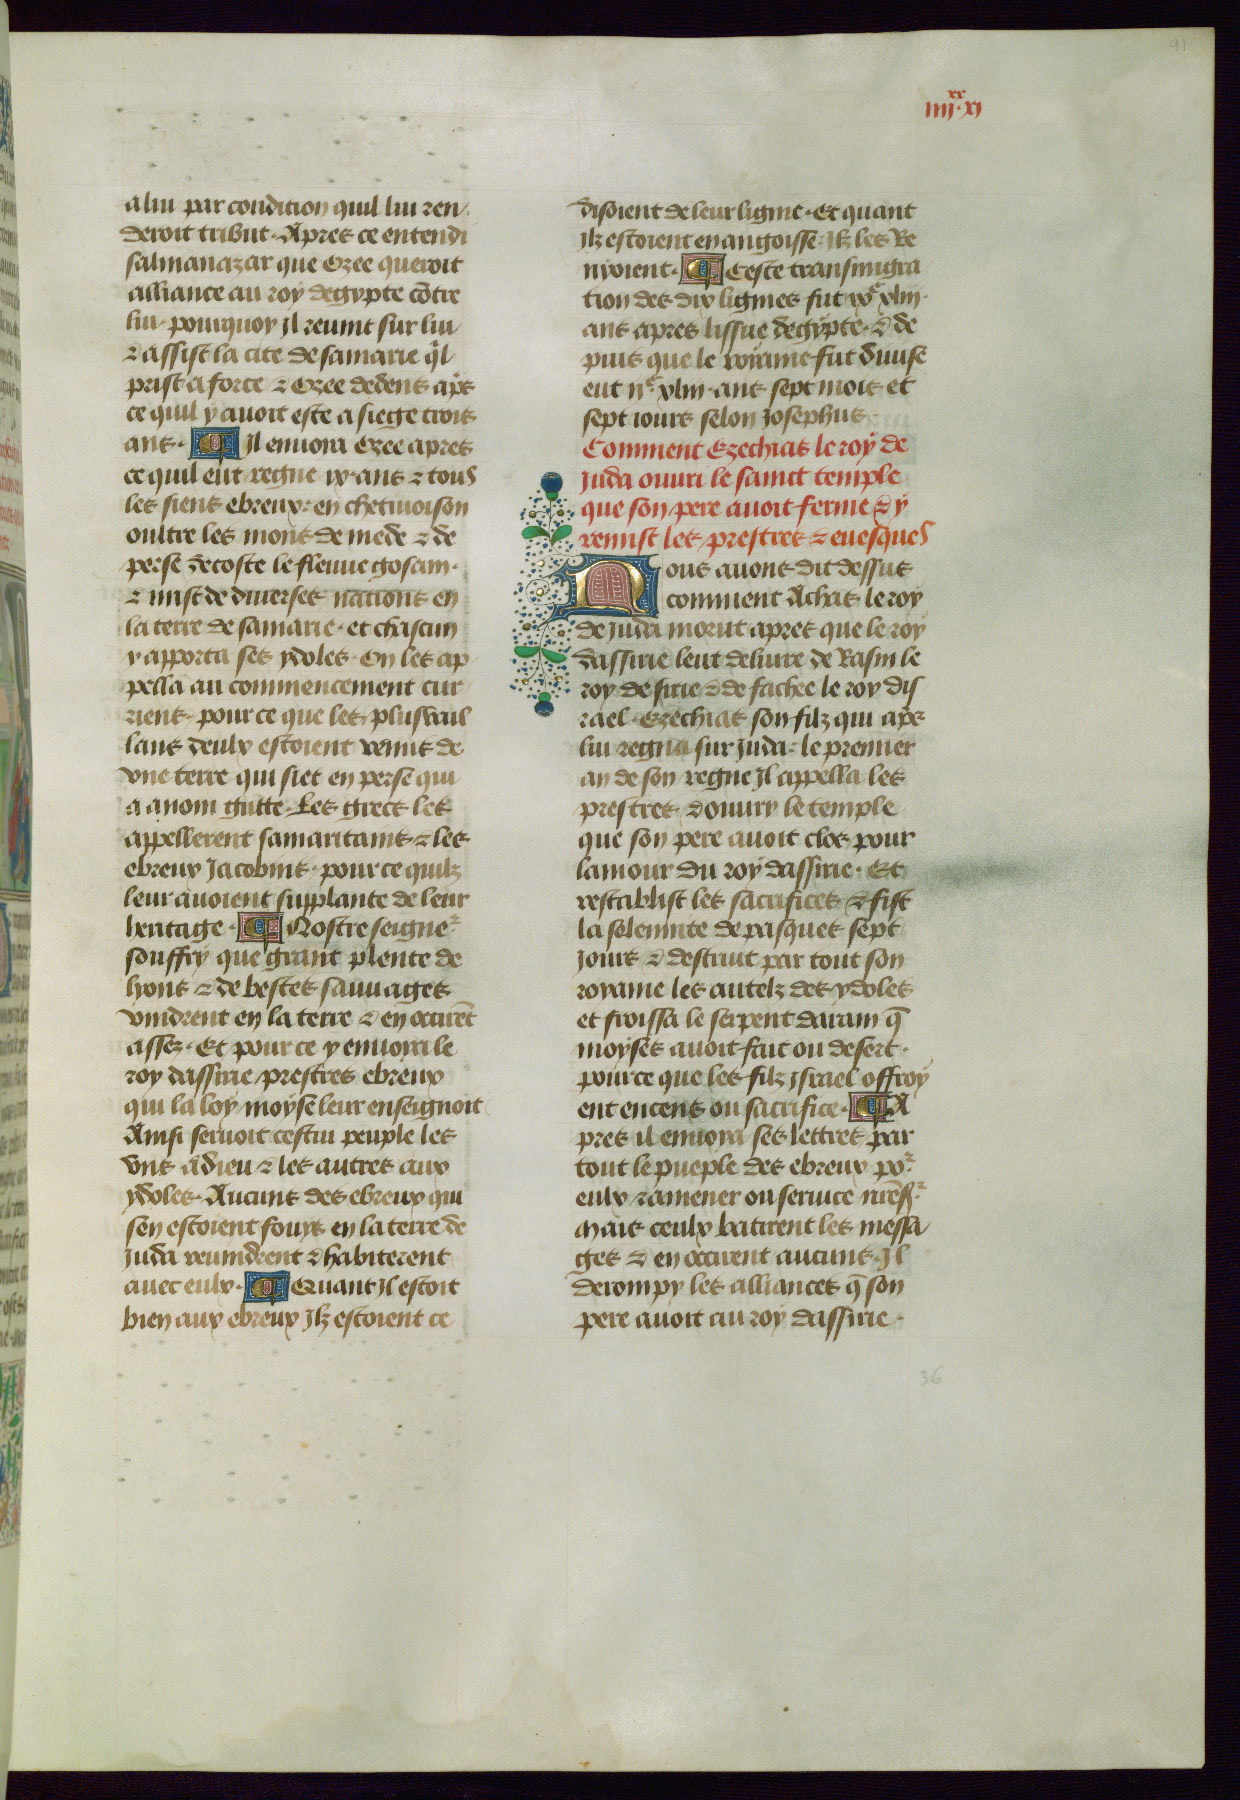 91
iiii xx xi
a lui par condicion quil lui ren
deroit tribut. Apres ce entendi
salmanazar que Ozee queroit
alliance au roy degypte cōtre
lui. pourquoy jl reuint sur lui
⁊ assist la cite de samarie q̄l
prist a force ⁊ Ozee dedens apꝰs
ce quil y auoit este a siege trois
ans. ¶ Jl enuoia Ozee apres
ce quil eut regne ix. ans ⁊ tous
les siens ebreux: en chetiuoison
oultre les mons de mede ⁊ de
perse decoste le fleuue gosam.
⁊ mist de diuerses nations en
la terre de samarie. et chascun
y apporta ses ydoles. On les ap
pella au commencement cur
riens. pource que les plus vail
lans deulx estoient venus de
vne terre qui siet en perse qui
a a nom gutte. Les grecs les
appellerent samaritains. ⁊ les
ebreux Jacobins. pource quilz
leur auoient supplante de leur
heritage. ¶ Nostre seigneᷣ
souffry que grant plente de
lyons ⁊ de bestes sauuages
vindrent en la terre ⁊ en occirēt
assez. Et pource y enuoia le
roy dassirie prestres ebreux
qui la loy moyse leur enseignoit
Ainsi seruoit cestui peuple les
vns a dieu ⁊ les autres aux
ydoles. Aucuns des ebreux qui
sen estoient fouys en la terre de
juda reuindrent ⁊ habiterent
auec eulx. ¶ Quant jl estoit
bien aux ebreux jlz estoient ce
disoient de leur ligne. Et quant
jlz estoient en angoisse: jlz les re
nyoient. ¶ Ceste transmigra
tion des dix lignies fut ixᶜ xlvii.
ans apres lissue degypte. ⁊ de
puis que le roiame fut diuise
eut iiᶜ xlm. ans sept mois et
sept iours selon josephus
Comment Ezechias le roy de
juda ouuri le sainct temple
que son pere auoit ferme ⁊ y
remist les prestres ⁊ euesques
Nous auons dit dessus
comment Achas le roy
de juda morut apres que le roy
dassirie leut deliure de Rasin le
roy de sirie ⁊ de fachee le roy dis
rael. Ezechias son filz qui apꝰs
lui regna sur juda: le premier
an de son regne jl appella les
prestres ⁊ ouury le temple
que son pere auoit clos pour
lamour du roy dassirie. Et
restablist les sacrifices ⁊ fist
la solennite de pasques sept
jours ⁊ destruit par tout son
royame les autelz des ydoles
et froissa le serpent darain q̄
moyses auoit fait ou desert.
pource que les filz jsrael offroy
ent encens ou sacrifice. ¶ A
pres il enuoia ses lettres par
tout le pueple des ebreux poᷣ
eulx ramener ou seruice nrēsᷣ.
Mais ceulx batirent les messa
ges ⁊ en occirent aucuns. Jl
derompy les alliances q̄ son
pere auoit au roy dassirie.
36